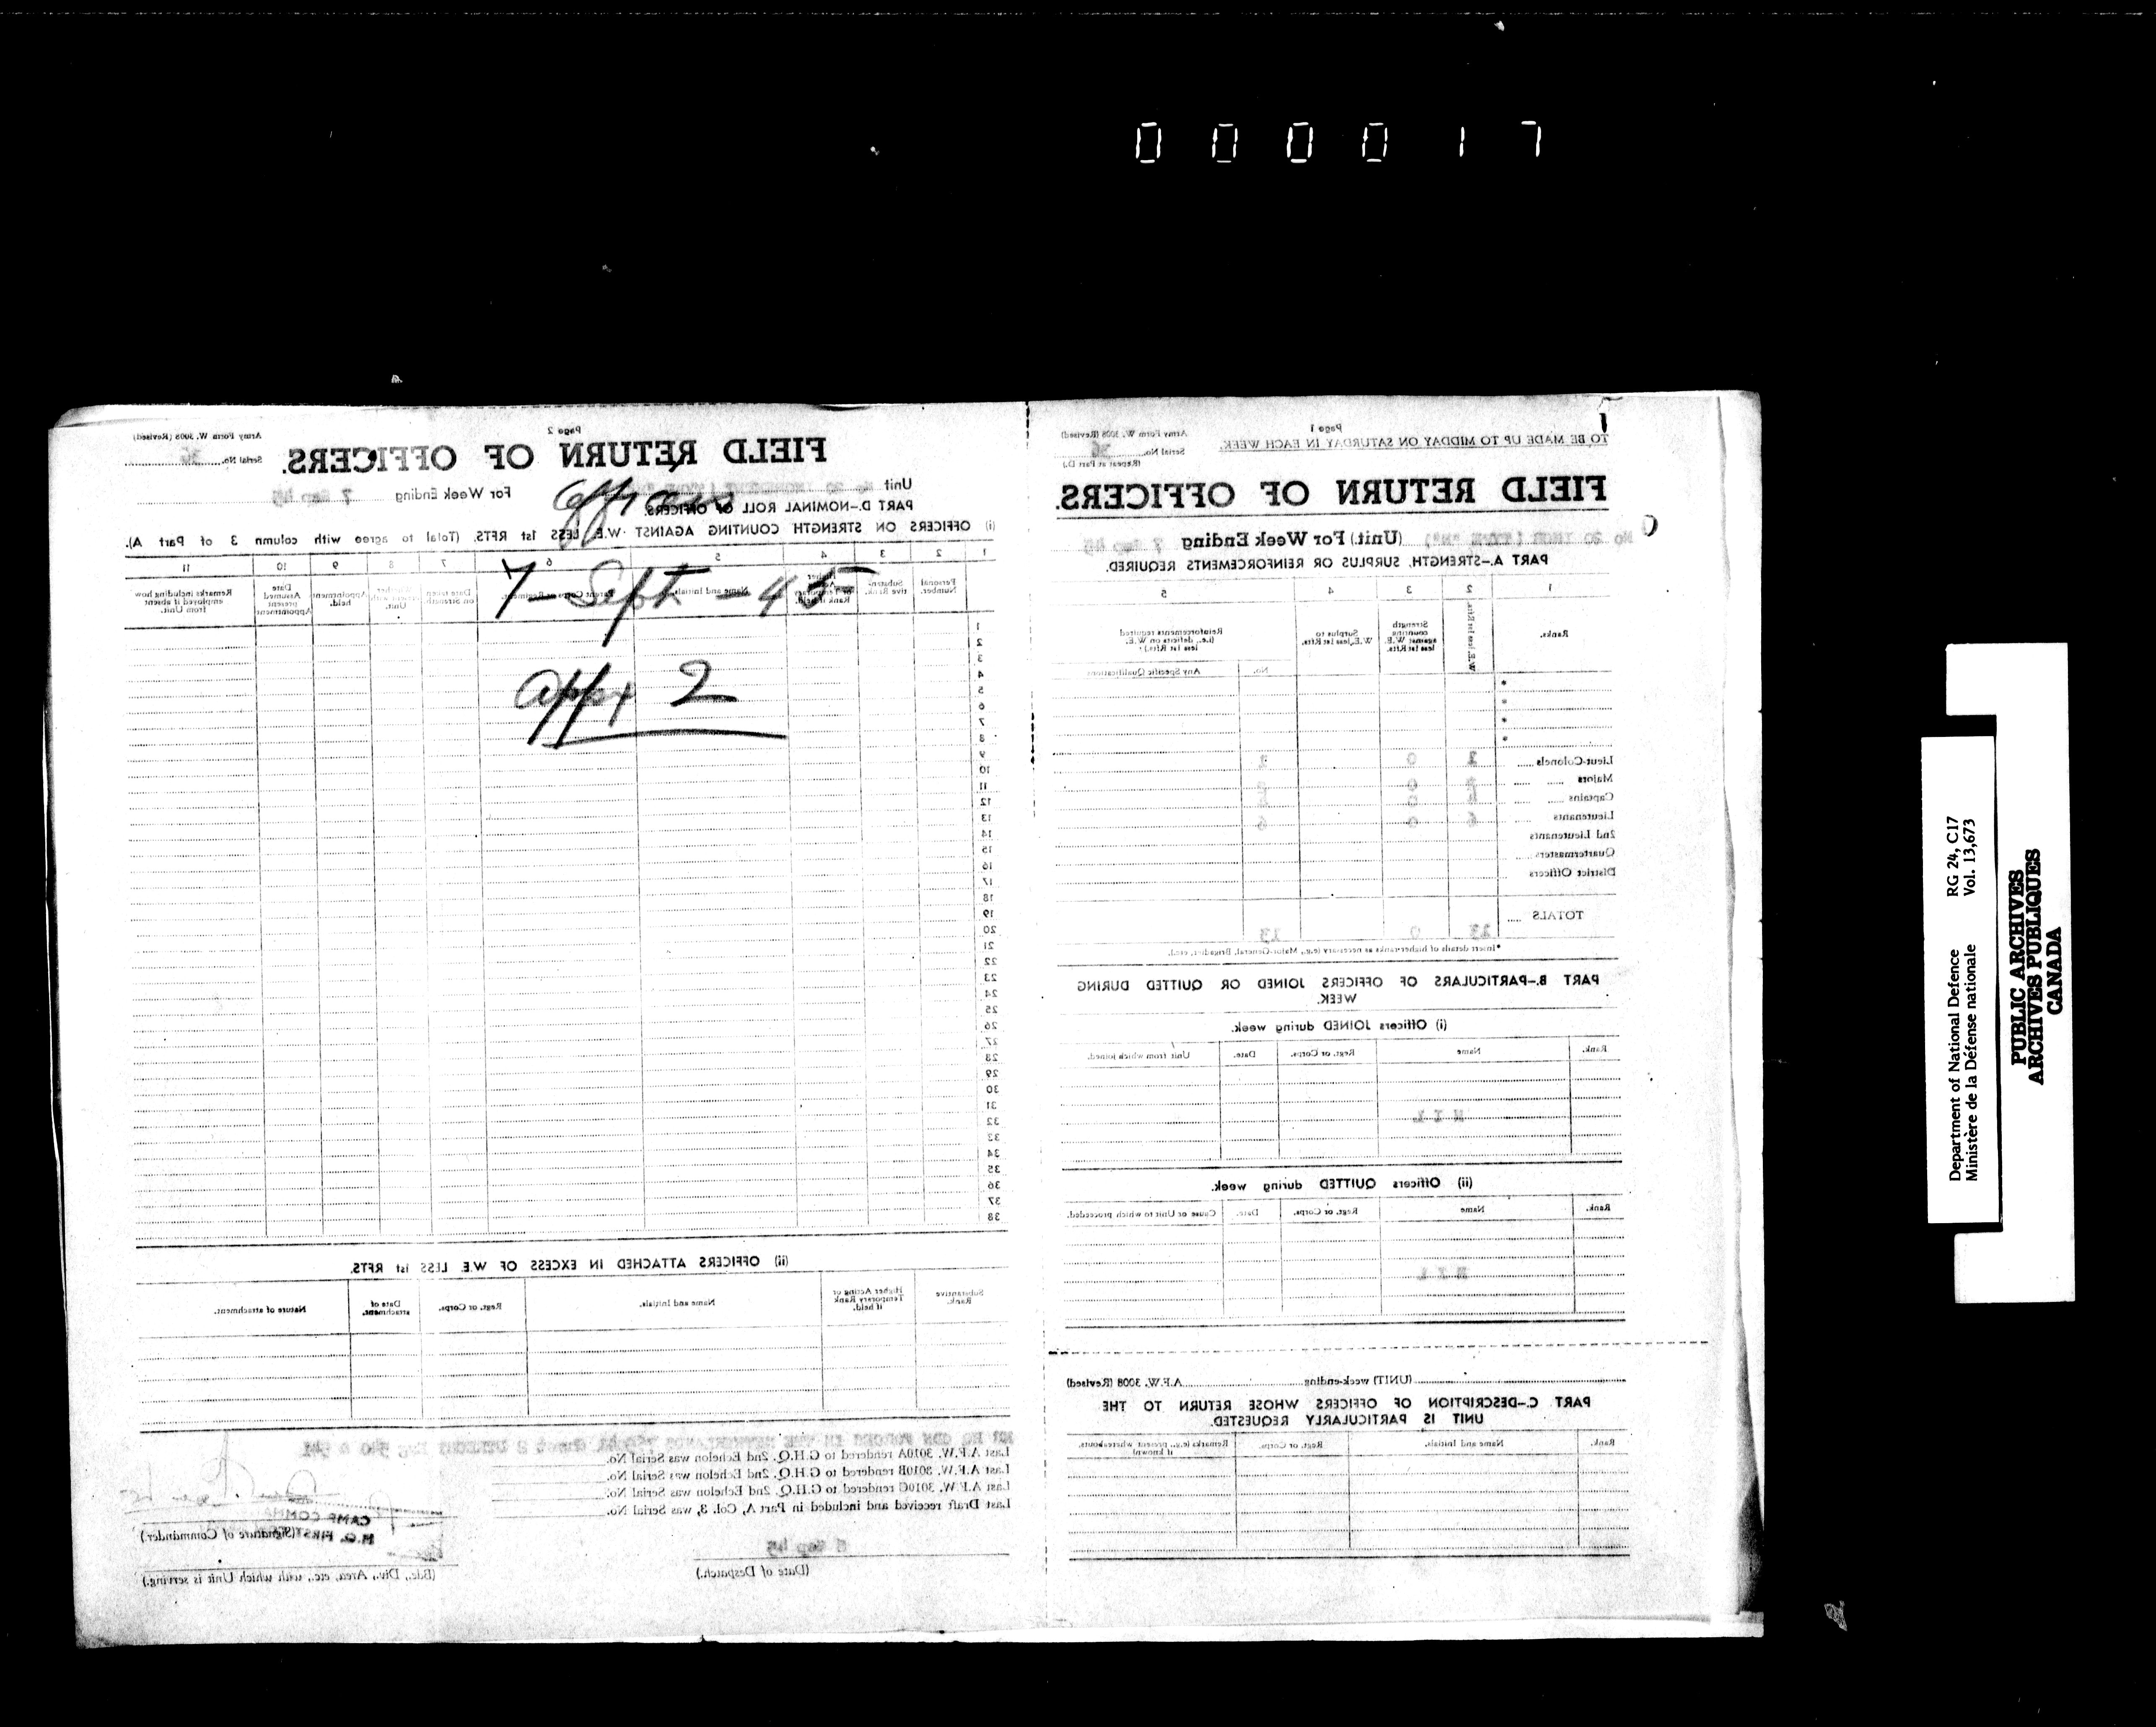 000017
Page 2
Army Form W. 3008 (Revised)
Serial No. 36
FIELD RETURN OF OFFICERS.
Unit
For Week Ending 7 Sep 45
Officers
PART D.—NOMINAL ROLL OF OFFICERS.
(i) OFFICERS ON STRENGTH COUNTING AGAINST W.E. LESS 1st RFTS. (Total to agree with column 3 of Part A).
1 2 3 4 5 6 7 8 9 10 11
Personal Number.
Substantive Rank.
Name and Initials.
Appointment held.
Date Assumed present Appointment
Remarks including how employed if absent from Unit.
7 - Sept - 45
appx 2
1
2
3
4
5
6
7
8
9
10
11
12
13
14
15
16
17
18
19
20
21
22
23
24
25
26
27
28
29
30
31
32
33
34
35
36
37
38
(ii) OFFICERS ATTACHED IN EXCESS OF W.E. LESS 1st RFTS.
Substantive Rank.
Higher Acting or Temporary Rank if held.
Name and Initials.
Regt. or Corps.
Date of attachment.
Nature of attachment.
Last A.F.W. 3010A rendered to G.H.Q. 2nd Echelon was Serial No.
Last A.F.W. 3010B rendered to G.H.Q. 2nd Echelon was Serial No.
Last A.F.W. 3010C rendered to G.H.Q. 2nd Echelon was Serial No.
Last Draft received and included in Part A, Col. 3, was Serial No.
CAMP
H.Q. FIRST
(Signature of Commander.)
Sep 45
(Date of Despatch.)
(Bde., Div., Area, etc., with which Unit is serving.)
Page 1
TO BE MADE UP TO MIDDAY ON SATURDAY IN EACH WEEK.
Army Form W. 3008 (Revised)
Serial No. 36
(Repeat at Part D.)
FIELD RETURN OF OFFICERS.
No 20 (Unit.) For Week Ending 7 Sep 45
PART A.—STRENGTH, SURPLUS OR REINFORCEMENTS REQUIRED.
1 2 3 4 5
Ranks.
Strength counting against W.E. less 1st Rfts.
Surplus to W.E. less 1st Rfts.
Reinforcements required (i.e., deficits on W.E. less 1st Rfts.):
No.
Any Specific Qualifications
*
*
*
*
Lieut-Colonels 1 0 1
Majors 2 0 2
Captains 4 0 4
Lieutenants 6 0 6
2nd Lieutenants
Quartermasters
District Officers
TOTALS 13 0 13
*Insert details of higher ranks as necessary (e.g., Major-General, Brigadier, etc.).
PART B.—PARTICULARS OF OFFICERS JOINED OR QUITTED DURING WEEK.
(i) Officers JOINED during week.
Rank. Name Regt. or Corps. Date. Unit from which joined.
NIL
(ii) Officers QUITTED during week.
Rank. Name Regt. or Corps. Date. Cause or Unit to which proceeded.
NIL
(UNIT) week-ending A.F.W. 3008 (Revised)
PART C.—DESCRIPTION OF OFFICERS WHOSE RETURN TO THE UNIT IS PARTICULARLY REQUESTED.
Rank. Name and Initials. Regt. or Corps. Remarks (e.g., present whereabouts, if known)
Department of National Defence RG 24, C17
Ministère de la Défense nationale Vol. 13,673
PUBLIC ARCHIVES
ARCHIVES PUBLIQUES
CANADA